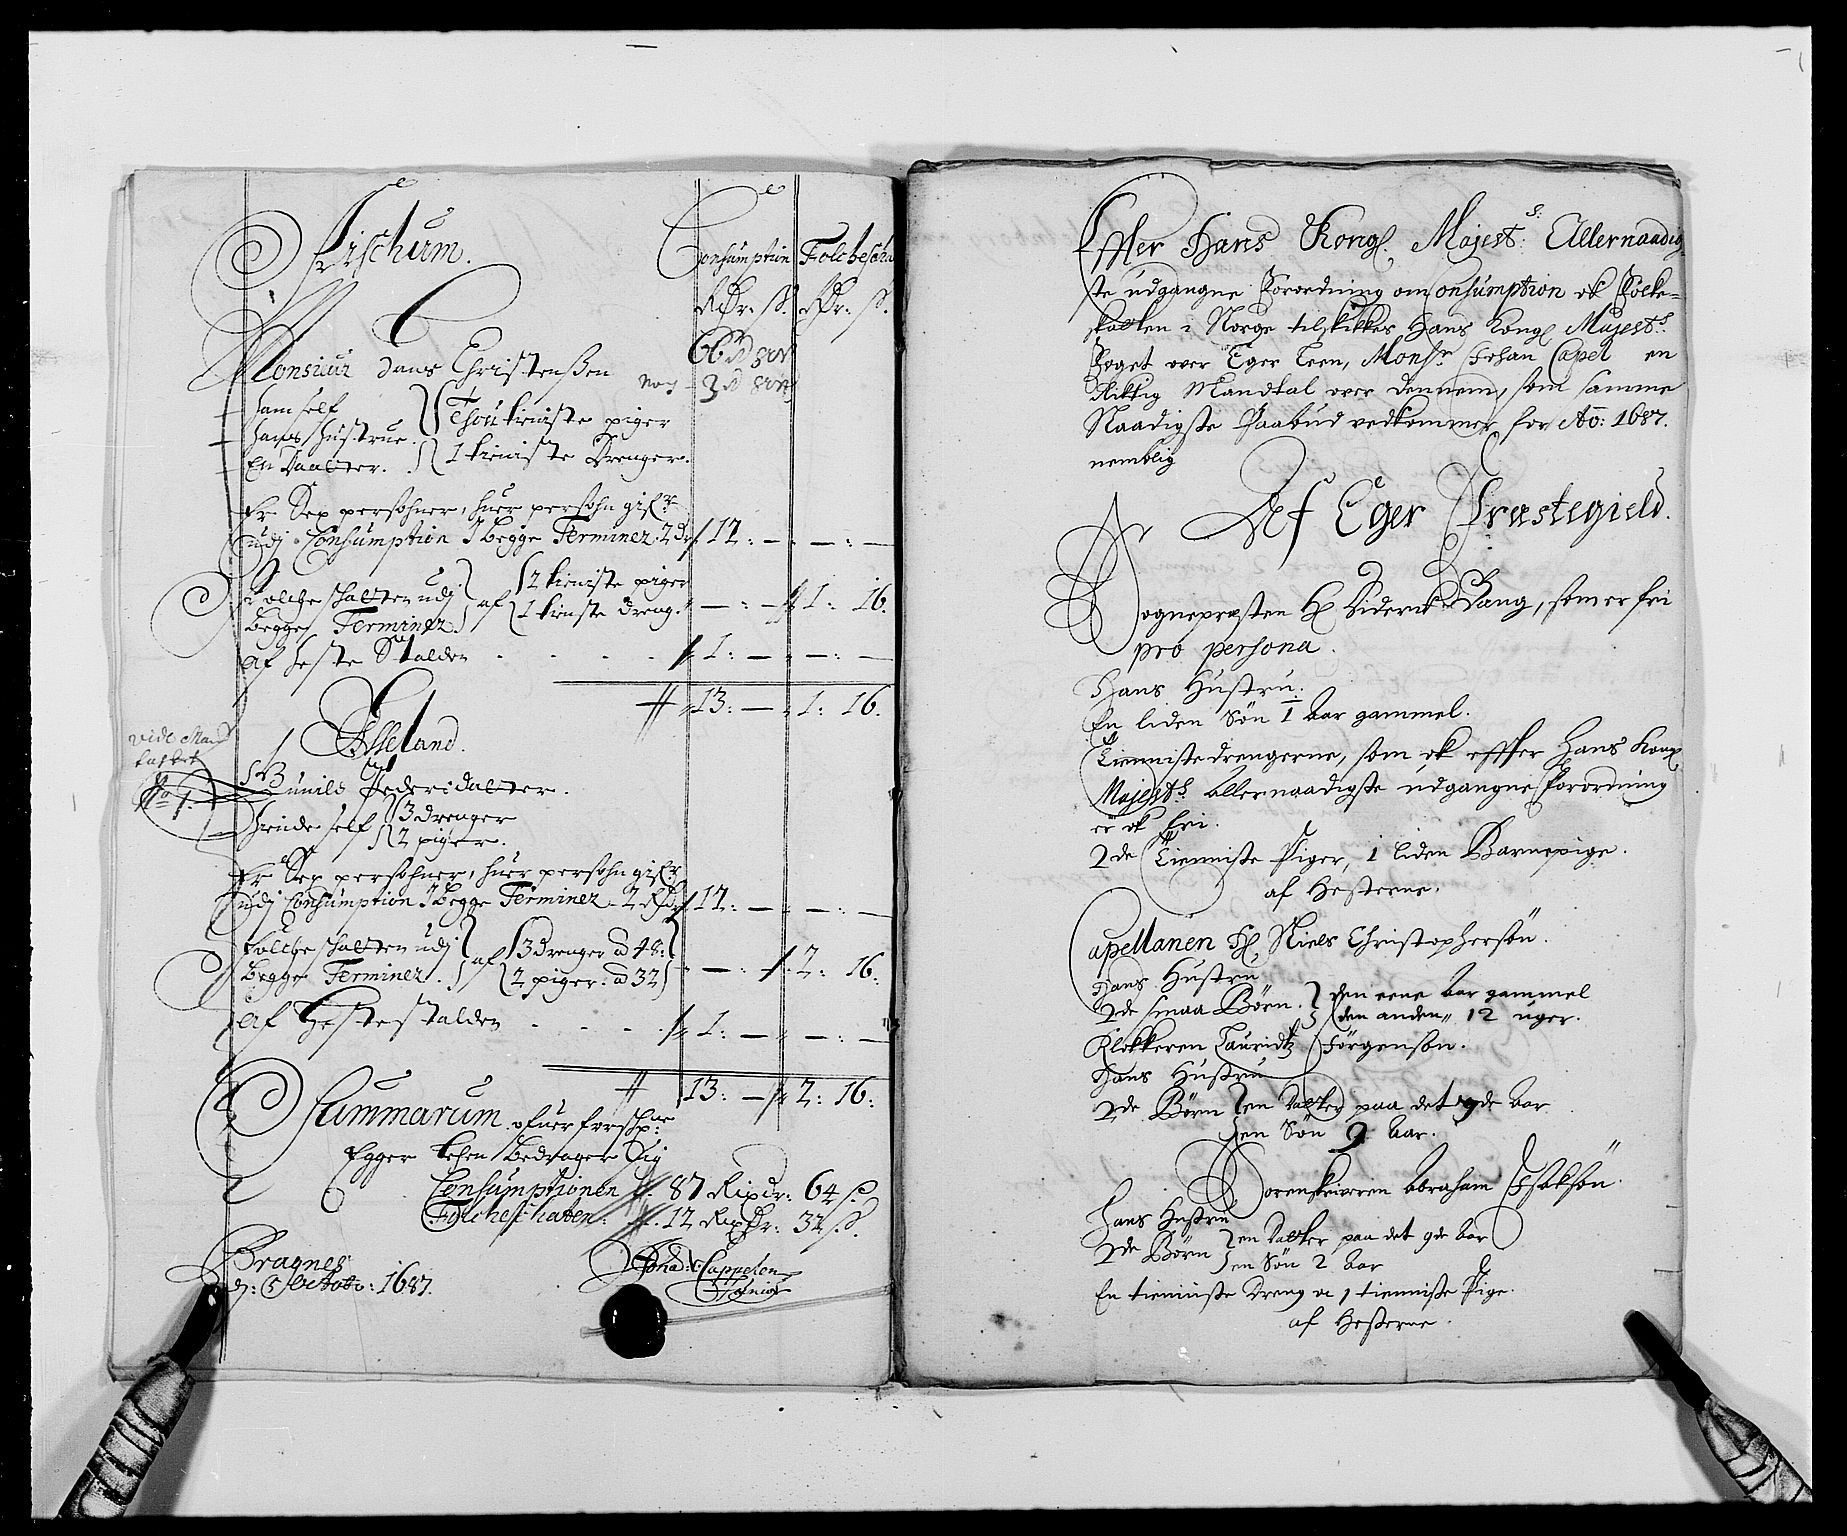 Fischum.
Consumption Folcheschat
Rdr. ß. Rdr. ß.
Monsieur Hans Christenßen
ham self
hans hustrue
En Daatter.
Thou tieniste piger
1 tieniste Drenger.
Er Sex persohner, huer persohn gifr
udj Consumption J begge Terminer 2 dr 12: — — : —
Folcheschatten udj
Begge Terminer
af
2 tieniste piger
1 tieniste dreng.
— : — 1: 16.
Af heste Stalden 1: — — : —
13: — 1: 16.
vide Man
No 1.
Aßeland.
Sl Gunild Pedersdatter.
Hende self
3 drenger
2 piger.
Er Sex persohner, huer persohn gifr
udj Consumption J begge Terminer 2 Rdr 12: — — : —
Folcheschatten udj
Begge Terminer.
af
3 drenger ad 48:
2 piger. ad 32
— : — 2: 16.
Af Hestestalden 1: — — : —
13: — 2: 16.
Summarum ofuer forschr:
Egger Lehen bedrager Sig
Consumptionen 87 Rixdr: 64 ß
Folcheschaten: 12 Rixdr: 32 ß.
Bragnes
d: 5 Octobr: 1687.
Cappelen
Effter Hans Kongl. Majests: Allernaadig-
ste udgangne Forordning om Consumption ok Folke-
skatten i Norge tilskikkes Hans Kongl Majests
Foget over Eger Leen, Monsr Johan Capel en
Riktig Mandtal over dennem, som samme
Naadigste Paabud vedkommer for Ao: 1687.
nemblig
Af Eger Præstegield.
Sognepræsten Hr Diderik Bang, som er fri
pro persona.
Hans Hustru.
En liden Søn 1 Aar gammel.
Tiennistedrengerne, som ok effter Hans Kongl
Majests Allernaadigste udgangne Forordning
er ok fri.
2de Tienniste Piger, 1 liden Barnepige.
af Hesterne.
Capellanen Hr Niels Christophersøn.
Hans Hustru
2de smaa Børn.
den eene Aar gammel
den anden 12 uger.
Klokkeren Lauridtz Jørgensøn.
Hans Hustru
2de Børn
en Datter paa det 9de Aar
en Søn 2 Aar.
Sorenskriveren Abraham Isaksøn.
Hans Hustru
2de Børn
en Datter paa det 9de Aar
en Søn 2 Aar
En tienniste Dreng oc 1 tienniste Pige.
af Hesterne.